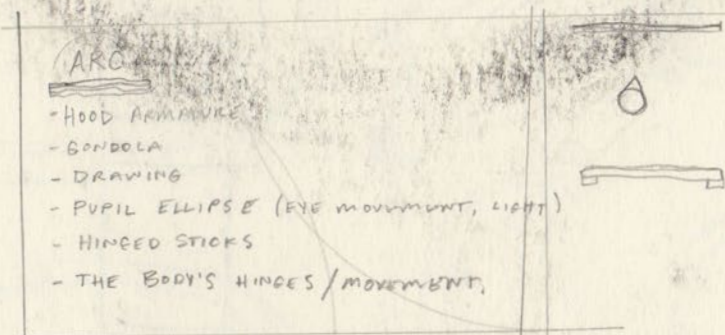 ARC
- HOOD ARMATURE
- GONDOLA
- DRAWING
- PUPIL ELLIPSE (EYE MOVEMENT, LIGHT)
- HINGED STICKS
- THE BODY'S HINGES / MOVEMENT.